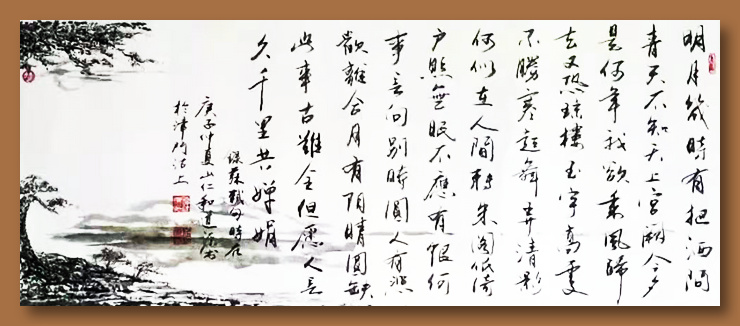 明月幾時有把酒問
青天不知天上宮闕今夕
是何年我欲乘風歸
去又恐瓊樓玉宇高處
不勝寒起舞弄清影
何似在人間轉朱閣低綺
户照無眠不應有恨何
事長向別時圓人有悲
歡離合月有阴晴圓缺
此事古難全但願人長
久千里共嬋娟
錄蘇軾句時居
庚子仲夏山仁和道书
於津門沽上